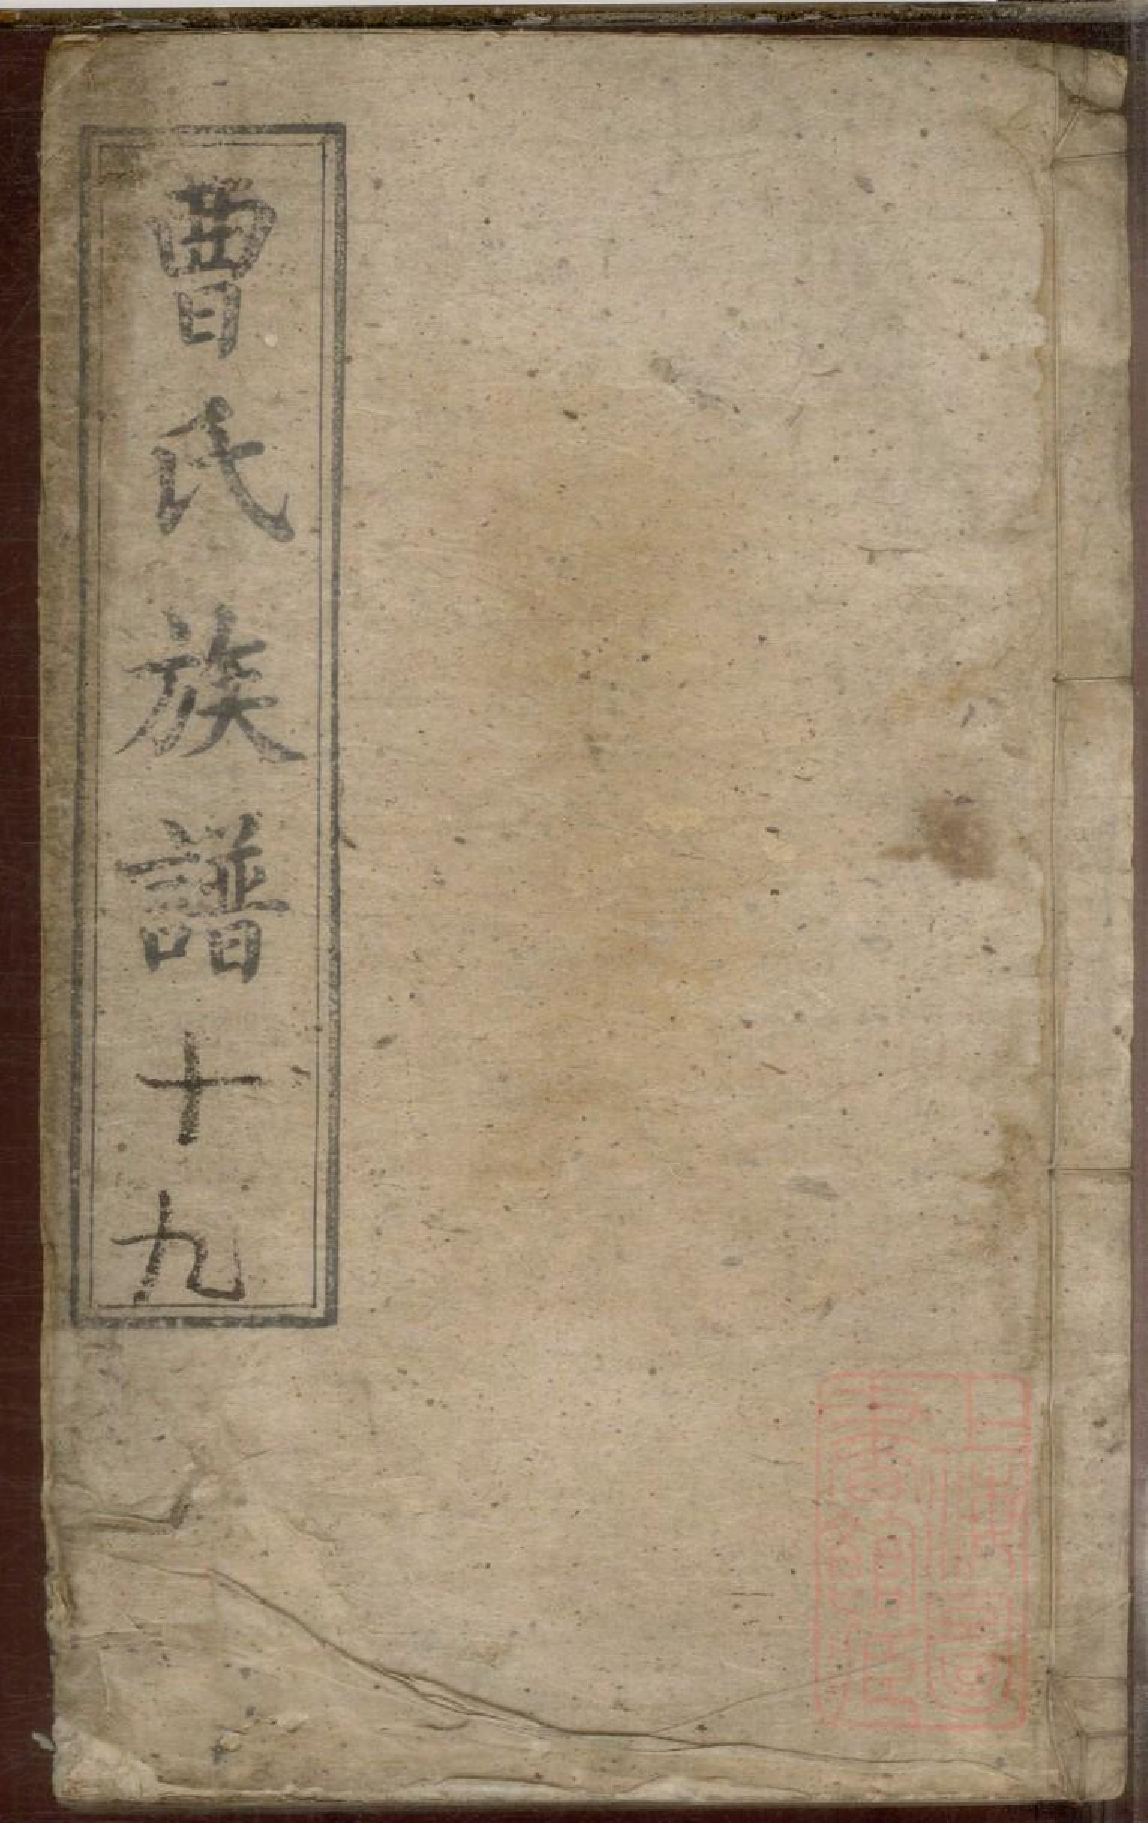 曹氏族譜十九
上海圖
書館藏